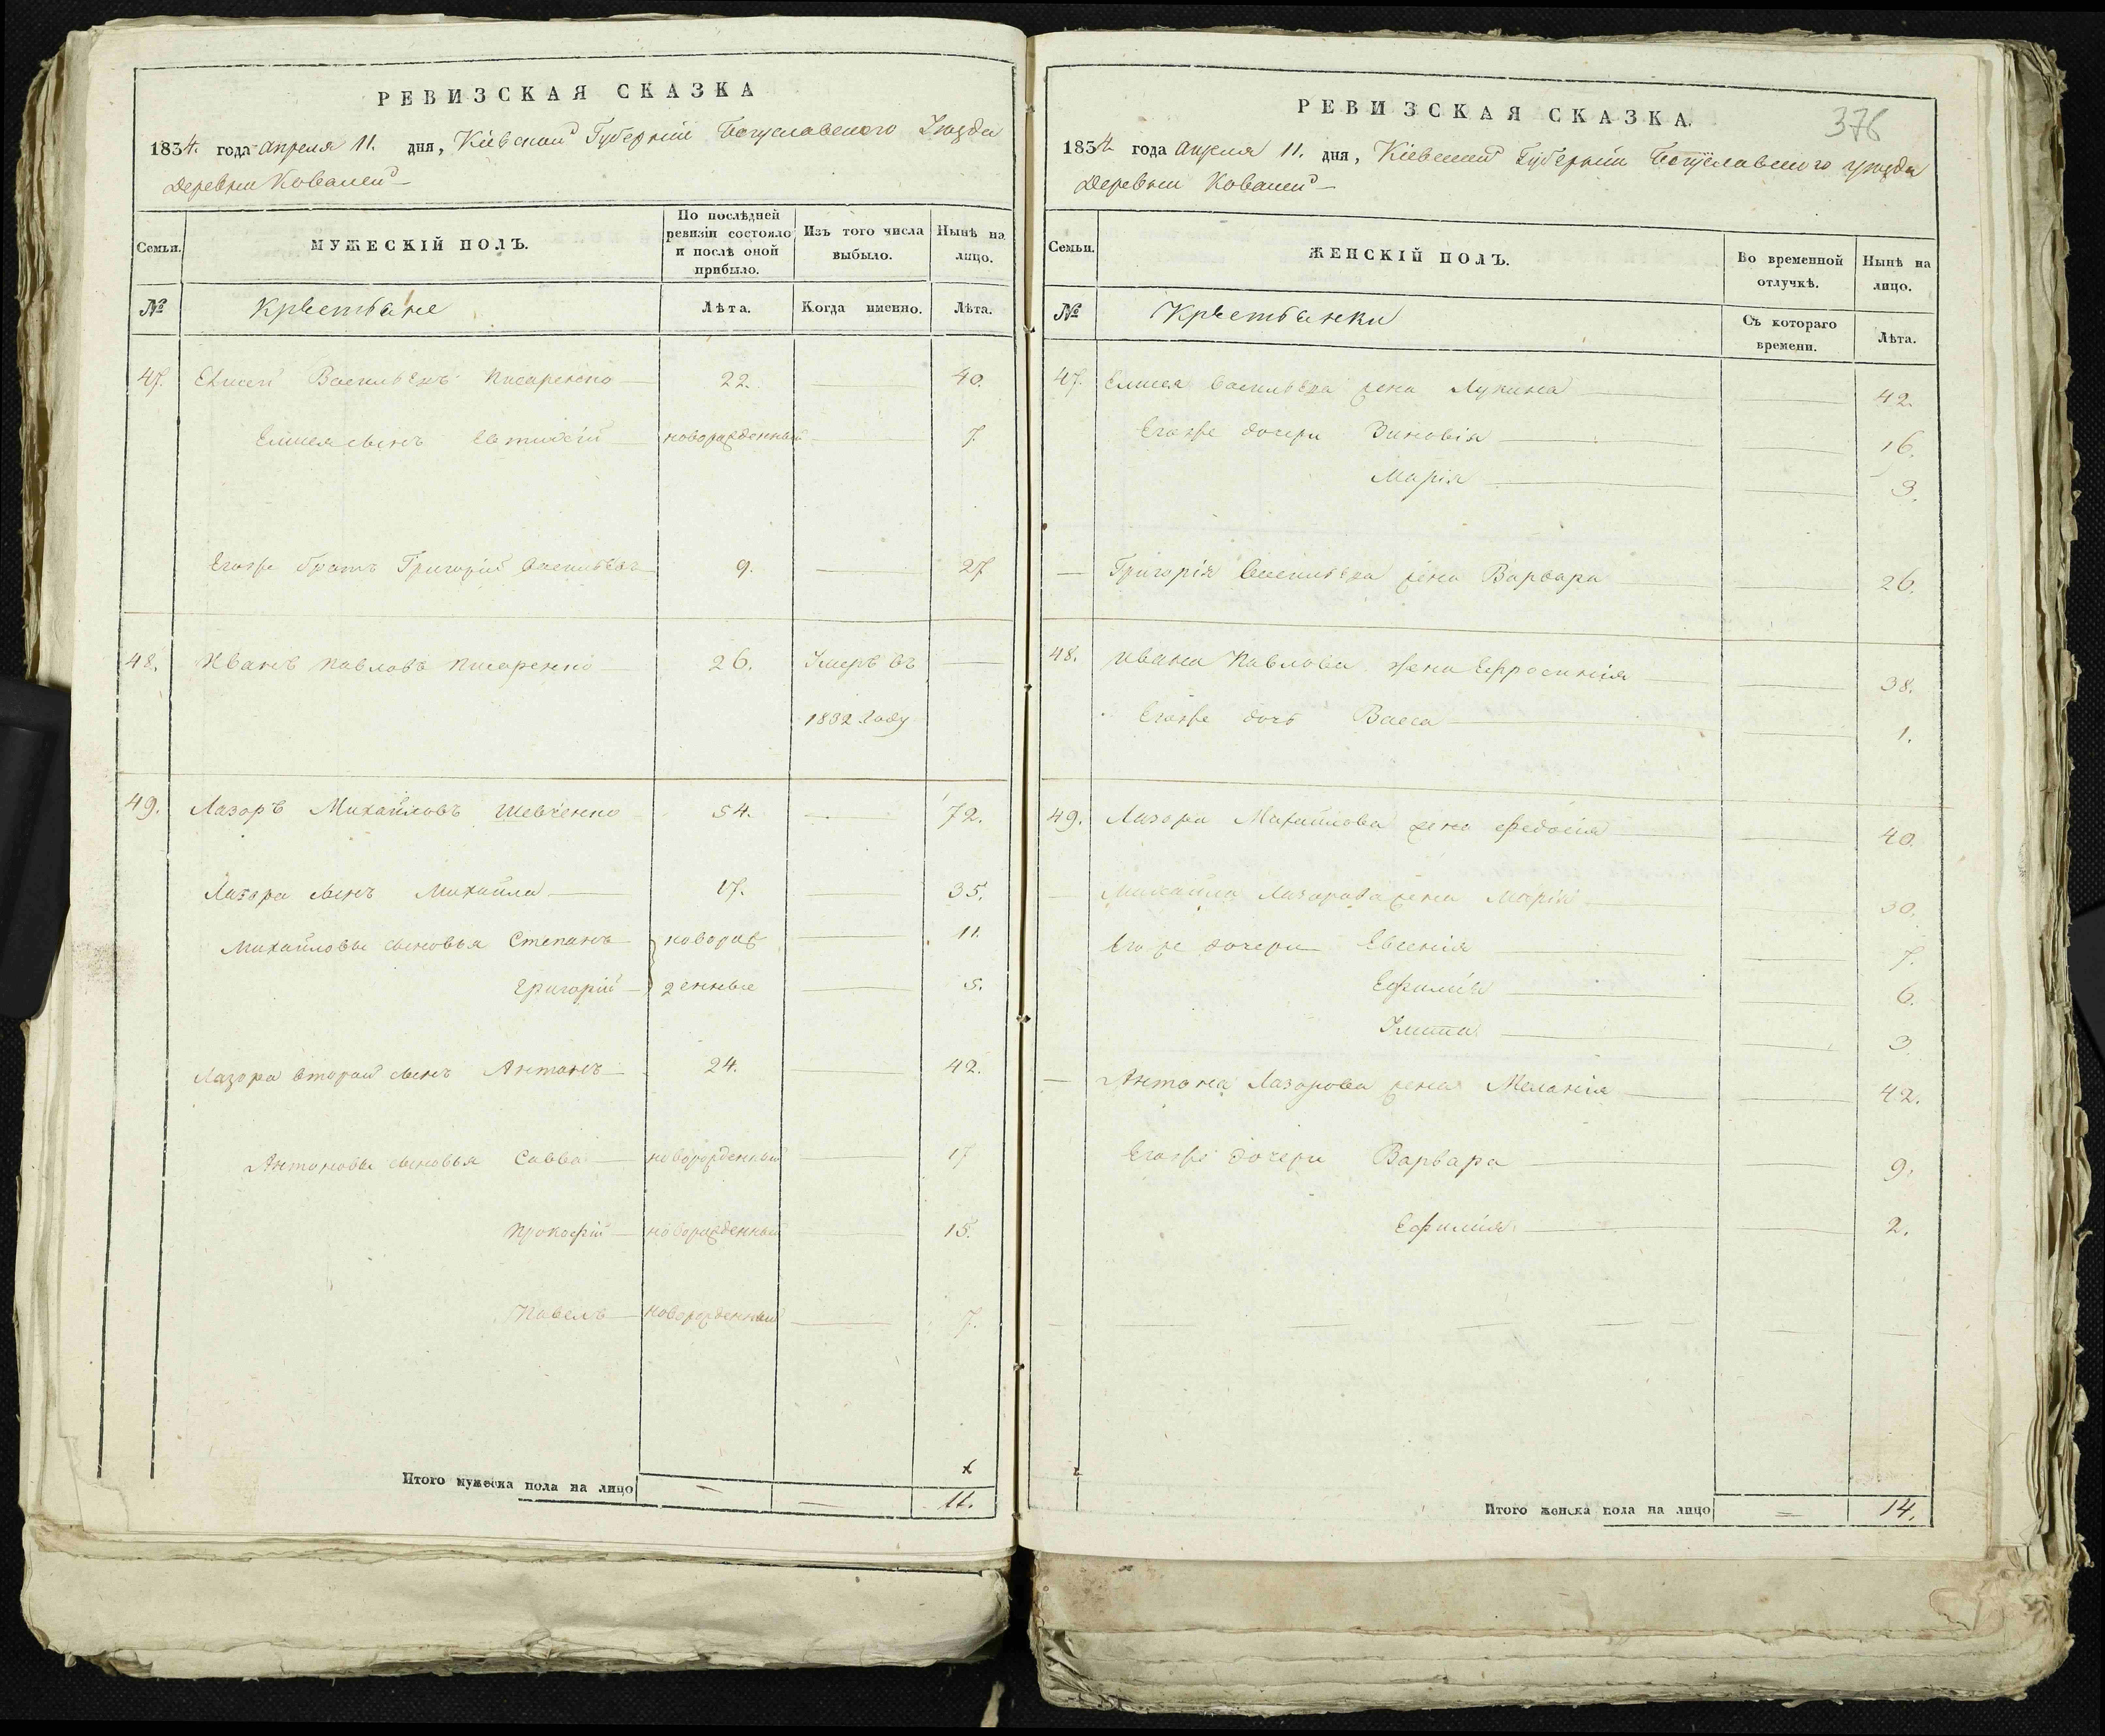 РЕВИЗСКАЯ СКАЗКА
1834. года апреля 11. дня, Кіевской Губерніи Богуславского Уезда
Деревни Ковалей
Семьи.
МУЖЕСКІЙ ПОЛЪ.
По послѣдней ревизіи состояло и послѣ оной прибыло.
Изъ того числа выбыло.
Нынѣ на лицо.
№
Крестьяне
Лѣта.
Когда именно.
Лѣта.
47. Елисей Васильевъ Писаренко 22. 40.
Елисея сынъ Евтихій новорожденный 7.
Егоже братъ Григорій Васильевъ 9. 27
48. Иванъ Павловъ Писаренко 26. Умеръ въ
1832 году
49. Лазоръ Михайловъ Шевченко 54. 72.
Лазора сынъ Михайла 17. 35.
Михайловы сыновья Степанъ новорож 11.
Григорій денные 5.
Лазора вторый сынъ Антонъ 24. 42.
Антоновы сыновья Савва новорожденный 17
Прокофій новорожденный 15.
Павелъ новорожденный 7.
Итого мужеска пола на лицо 11.
376
РЕВИЗСКАЯ СКАЗКА.
1834. года апреля 11. дня, Кіевской Губерніи Богуславского уезда
Деревни Ковалей
Семьи.
ЖЕНСКІЙ ПОЛЪ.
Во временной отлучкѣ.
Нынѣ на лицо.
№
Крестьянки
Съ котораго времени.
Лѣта.
47. Елисея Васильева жена Лукина 42.
Егоже дочери Зиновія 16.
Марія 3.
Григорія Васильева жена Варвара 26.
48. Ивана Павлова жена Ефросинія 38.
Егоже дочь Васса 1.
49. Лазора Михайлова жена Федосія 40.
Михайла Лазорова жена Марія 30.
Его же дочери Евгенія 7.
Ефимія 6.
3
Антона Лазорова жена Меланія 42.
Егоже дочери Варвара 9.
Ефимія 2.
Итого женска пола на лицо 14.